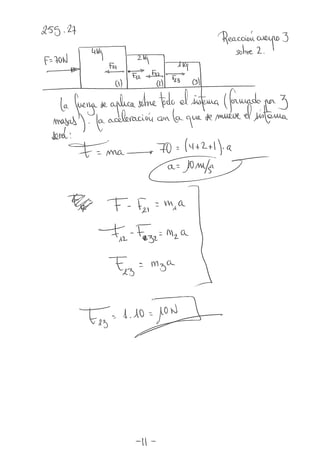 259.27
Reacción cuerpo 3
sobre 2.
F=70N
4kg
2kg
1kg
F21
F12
F32
F23
(1)
(2)
(3)
La fuerza se aplica sobre todo el sistema (formado por 3
masas). La aceleración con la que se mueve el sistema
será:
F = ma → 70 = (4+2+1)·a
a = 10 m/s²
F - F21 = m1a
F12 - F32 = m2 a
F23 = m3 a
F23 = 1·10 = 10N
-11-